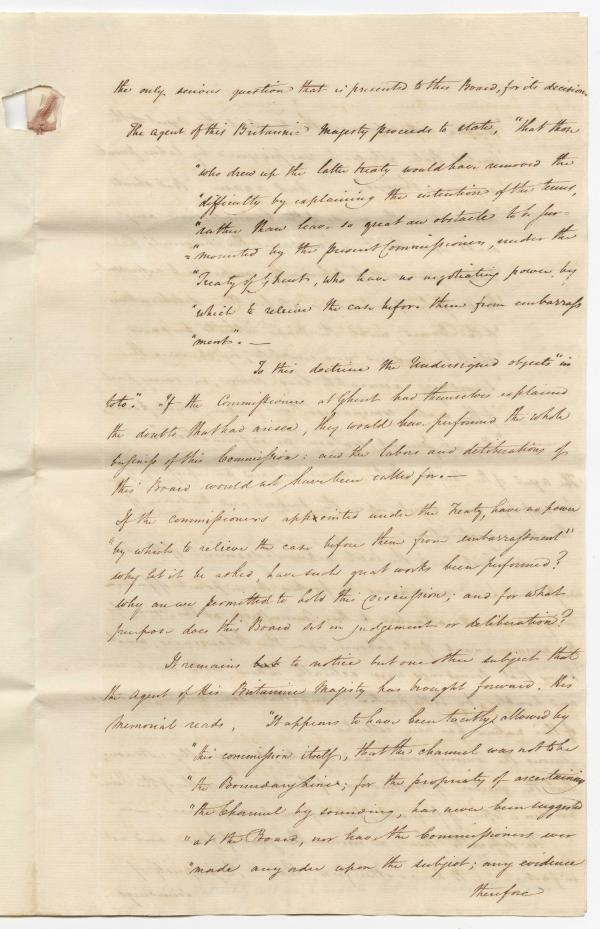 the only serious question that is presented to this Board, for its decision.
The agent of his Britannic Majesty proceeds to state, "that those
"who drew up the latter treaty would have removed the
"difficulty by explaining the intention of the terms,
"rather than leave so great an obstacle to be sur-
="mounted by the present Commissioners, under the
"Treaty of Ghent, who have no negotiating power, by
"which to relieve the case before them from embarrass
"ment". —
To this doctrine the Undersigned objects "in
toto." If the Commissioners at Ghent had themselves explained
the doubts that had arisen, they would have performed the whole
business of this Commission: and the labors and deliberations of
this Board would not have been called for. —
If the commissioners appointed under the Treaty, have no power
"by which to relieve the case before them from embarrassment"
why let it be asked, have such great works been performed?
why are we permitted to hold this discussion; and for what
purpose does this Board sit in judgement or deliberation?
It remains but to notice but one other subject that
the agent of His Britannic Majesty has brought forward. His
memorial reads, "It appears to have been tacitly allowed by
"this commission itself, that the channel was not to be
"the Boundary line; for the propriety of ascertaining
"the Channel by sounding, has never been suggested
"at the Board, nor have the Commissioners ever
"made any order upon the subject; any evidence
therefore